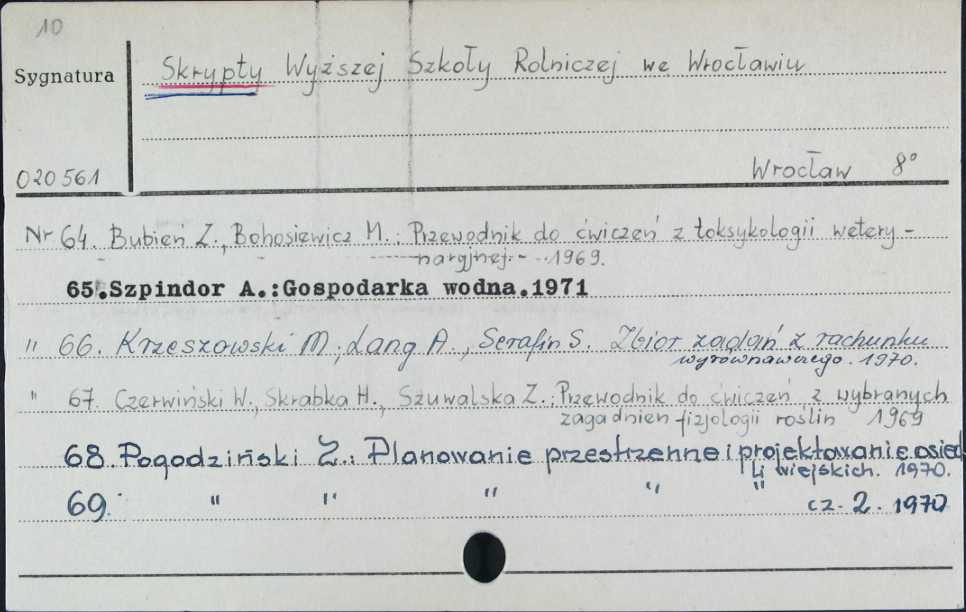 10
Sygnatura
Skrypty Wyższej Szkoły Rolniczej we Wrocławiu
020561
Wrocław 8°
Nr 64. Bubień Z., Bohosiewicz M.: Przewodnik do ćwiczeń z toksykologii wetery-
naryjnej. - 1969.
65. Szpindor A.:Gospodarka wodna.1971
" 66. Krzeszowski M, Lang A., Serafin S. Zbiór zadań z rachunku
wyrównawczego. 1970.
" 67. Czerwiński W., Skrabka H., Szuwalska Z.: Przewodnik do ćwiczeń z wybranych
zagadnien fizjologii roślin 1969
68. Pogodziński Z.: Planowanie przestrzenne i projektowanie osied
li wiejskich. 1970.
69. " " " " " cz. 2. 1970